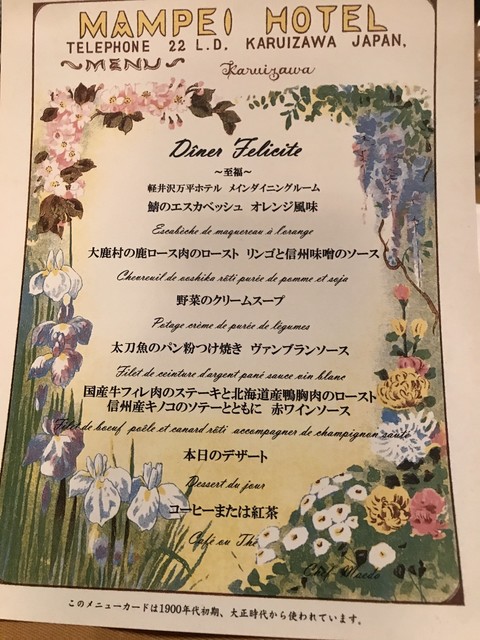 MAMPEI HOTEL
TELEPHONE 22 L.D. KARUIZAWA JAPAN.
~MENU~ Karuizawa
Dîner Felicite
～至福～
軽井沢万平ホテル メインダイニングルーム
鯖のエスカベッシュ オレンジ風味
Escabèche de maquereau à l'orange
大鹿村の鹿ロース肉のロースト リンゴと信州味噌のソース
Chevreuil de ooshika rôti purée de pomme et soja
野菜のクリームスープ
Potage crème de purée de légumes
太刀魚のパン粉つけ焼き ヴァンブランソース
Filet de ceinture d'argent pané sauce vin blanc
国産牛フィレ肉のステーキと北海道産鴨胸肉のロースト
信州産キノコのソテーとともに 赤ワインソース
Filet de boeuf poêle et canard rôti accompagner de champignon sauté
本日のデザート
Dessert du jour
コーヒーまたは紅茶
Café ou Thé
Chef
このメニューカードは1900年代初期、大正時代から使われています。